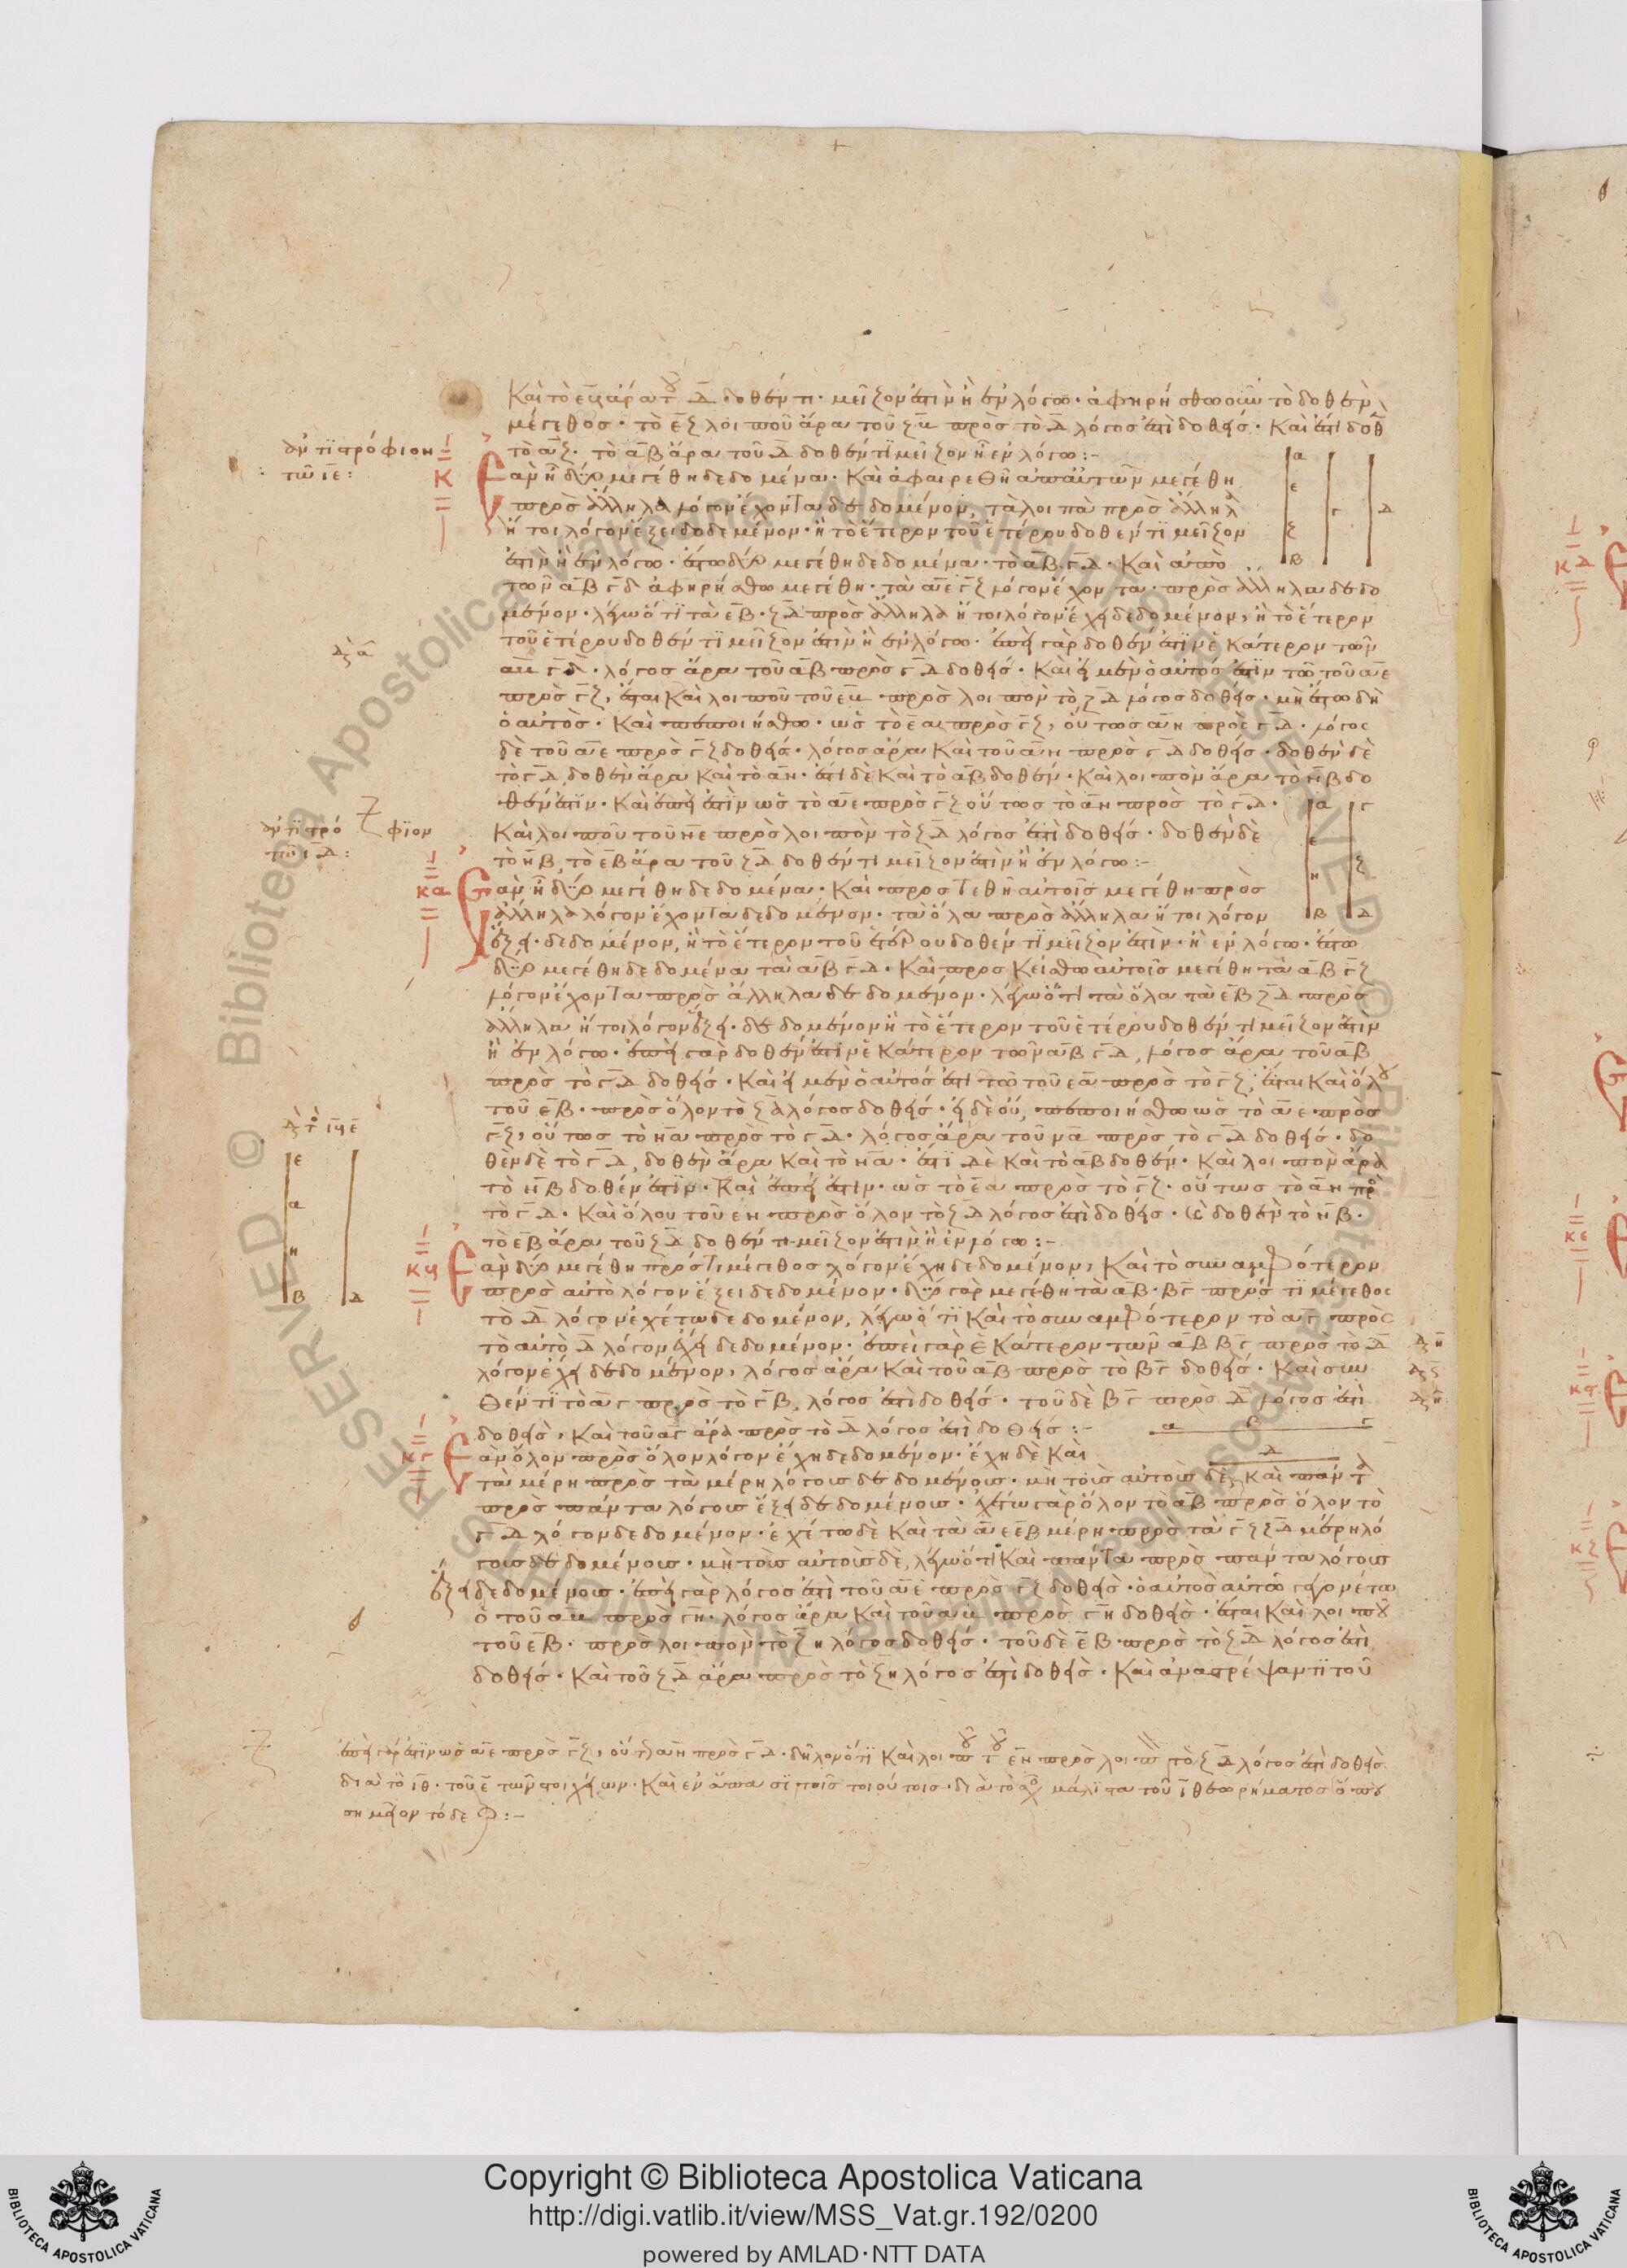 Καὶ τὸ εη ἄρα τοῦ Δ δοθέντι μεῖζόν ἐστιν ἢ ἐν λόγω· ἀφηρήσθω οὖν τὸ δοθὲν
μέγεθος· τὸ εζ λοιποῦ ἄρα τοῦ ζη πρὸς τὸ Δ λόγος ἐστὶ δοθείς· Καὶ ἐστὶ δοθ
τὸ αζ· τὸ αβ ἄρα τοῦ Δ δοθέντι μεῖζον ἢ ἐν λόγω:-
ἀντιστρόφιον
τῶ ιε:
κ
Εὰν ἢ δύο μεγέθη δεδομένα· Καὶ ἀφαιρεθῆ ἀπ' αὐτῶν μεγέθη
πρὸς ἄλληλα λόγον ἔχοντα δεδομένον, τὰ λοιπὰ πρὸς ἄλληλα
ἤτοι λόγον ἕξει δεδομένον· ἢ τὸ ἕτερον τοῦ ἑτέρου δοθέντι μεῖζον
ἐστὶν ἢ ἐν λόγω· ἔστω δύο μεγέθη δεδομένα· τὸ αβ γδ· Καὶ ἀπὸ
τῶν αβ γδ ἀφηρήσθω μεγέθη· τὰ αε γζ λόγον ἔχοντα πρὸς ἄλληλα δεδο
μένον· λέγω ὅτι τὰ εβ· ζΔ πρὸς ἄλληλα ἤτοι λόγον ἔχει δεδομένον, ἢ τὸ ἕτερον
τοῦ ἑτέρου δοθέντι μεῖζον ἐστὶν ἢ ἐν λόγω· ἐπεὶ γὰρ δοθέν ἐστιν ἑκάτερον τῶν
αβ γδ· λόγος ἄρα τοῦ αβ πρὸς γΔ δοθείς· Καὶ εἰ μὲν ὁ αὐτός ἐστιν τῶ τοῦ αε
πρὸς γζ, ἔσται Καὶ λοιποῦ τοῦ εβ πρὸς λοιπὸν τὸ ζΔ λόγος δοθείς· μὴ ἔστω δὴ
ὁ αὐτὸς· Καὶ πεποιήσθω· ὡς τὸ εα πρὸς γζ, οὕτως αη πρὸς γΔ· λόγος
δὲ τοῦ αε πρὸς γζ δοθείς· λόγος ἄρα Καὶ τοῦ αη πρὸς γΔ δοθείς· δοθὲν δὲ
τὸ γΔ, δοθὲν ἄρα Καὶ τὸ αη· ἔστι δὲ Καὶ τὸ αβ δοθέν· Καὶ λοιπὸν ἄρα τὸ ηβ δο
θέν ἐστιν· Καὶ ἐπεί ἐστιν ὡς τὸ αε πρὸς γζ οὕτως τὸ αη πρὸς τὸ γΔ·
Καὶ λοιποῦ τοῦ ηε πρὸς λοιπὸν τὸ ζΔ λόγος ἐστὶ δοθείς· δοθὲν δὲ
τὸ ηβ, τὸ εβ ἄρα τοῦ ζΔ δοθέντι μεῖζον ἐστὶν ἢ ἐν λόγω:-
ἀντιστρόφιον
τοῦ ιΔ:
κα
Εὰν ἢ δύο μεγέθη δεδομένα· Καὶ προστεθῆ αὐτοῖς μεγέθη πρὸς
ἄλληλα λόγον ἔχοντα δεδομένον· τὰ ὅλα πρὸς ἄλληλα ἤτοι λόγον
ἕξει· δεδομένον, ἢ τὸ ἕτερον τοῦ ἑτέρου δοθέντι μεῖζον ἐστὶν· ἢ ἐν λόγω· ἔστω
δύο μεγέθη δεδομένα τὰ αβ γΔ· Καὶ προσκείσθω αὐτοῖς μεγέθη τὰ αε γζ
λόγον ἔχοντα πρὸς ἄλληλα δεδομένον· λέγω ὅτι τὰ ὅλα τὰ εβ ζΔ πρὸς
ἄλληλα ἤτοι λόγον ἕξει· δεδομένον ἢ τὸ ἕτερον τοῦ ἑτέρου δοθέντι μεῖζον ἐστιν
ἢ ἐν λόγω· ἐπεὶ γὰρ δοθέν ἐστιν ἑκάτερον τῶν αβ γΔ, λόγος ἄρα τοῦ αβ
πρὸς τὸ γΔ δοθείς· Καὶ εἰ μὲν ὁ αὐτός ἐστι τῶ τοῦ εα πρὸς τὸ γζ, ἔσται Καὶ ὅλου
τοῦ εβ· πρὸς ὅλον τὸ ζΔ λόγος δοθείς· εἰ δὲ οὔ, πεποιήσθω ὡς τὸ αε πρὸς
γζ, οὕτως τὸ ηα πρὸς τὸ γΔ· λόγος ἄρα τοῦ ηα πρὸς τὸ γΔ δοθείς· δο
θὲν δὲ τὸ γΔ, δοθὲν ἄρα Καὶ τὸ ηα· ἔστι δὲ Καὶ τὸ αβ δοθέν· Καὶ λοιπὸν ἄρα
τὸ ηβ δοθέν ἐστιν· Καὶ ἐπεί ἐστιν· ὡς τὸ εα πρὸς τὸ γζ· οὕτως τὸ αη πρὸς
τὸ γΔ· Καὶ ὅλου τοῦ εη πρὸς ὅλον τὸ ζΔ λόγος ἐστὶ δοθείς· καὶ δοθὲν τὸ ηβ·
τὸ εβ ἄρα τοῦ ζΔ δοθέντι μεῖζον ἐστὶν ἢ ἐν λόγω:-
Εὰν δύο μεγέθη πρός τι μέγεθος λόγον ἔχη δεδομένον, Καὶ τὸ συναμφότερον
πρὸς αὐτὸ λόγον ἕξει δεδομένον· δύο γὰρ μεγέθη τὰ αβ· βγ πρός τι μέγεθος
τὸ Δ λόγον ἐχέτω δεδομένον, λέγω ὅτι Καὶ τὸ συναμφότερον τὸ αγ πρὸς
τὸ αὐτὸ Δ λόγον ἔχει δεδομένον· ἐπεὶ γὰρ ἑκάτερον τῶν αβ βγ πρὸς τὸ Δ
λόγον ἔχει δεδομένον, λόγος ἄρα Καὶ τοῦ αβ πρὸς τὸ βγ δοθείς· Καὶ συν
θέντι τὸ αγ πρὸς τὸ γβ, λόγος ἐστὶ δοθείς· τοῦ δὲ βγ πρὸς Δ λόγος ἐστὶ
δοθείς, Καὶ τοῦ αγ ἄρα πρὸς τὸ Δ λόγος ἐστὶ δοθείς:-
κγ
Εὰν ὅλον πρὸς ὅλον λόγον ἔχη δεδομένον· ἔχη δὲ Καὶ
τὰ μέρη πρὸς τὰ μέρη λόγους δεδομένους· μὴ τοὺς αὐτοὺς δὲ, Καὶ πάντα
πρὸς πάντα λόγους ἕξει δεδομένους· ἐχέτω γὰρ ὅλον τὸ αβ πρὸς ὅλον τὸ
γΔ λόγον δεδομένον· ἐχέτω δὲ Καὶ τὰ αε εβ μέρη πρὸς τὰ γζ ζΔ μέρη λό
γους δεδομένους· μὴ τοὺς αὐτοὺς δὲ, λέγω ὅτι Καὶ πάντα πρὸς πάντα λόγους
ἕξει δεδομένους· ἐπεὶ γὰρ λόγος ἐστὶ τοῦ αε πρὸς γζ δοθείς· ὁ αὐτὸς αὐτῶ γεγονέτω
ὁ τοῦ αβ πρὸς γη· λόγος ἄρα Καὶ τοῦ αβ πρὸς γη δοθείς· ἔσται Καὶ λοιποῦ
τοῦ εβ· πρὸς λοιπὸν τὸ ζη λόγος δοθείς· τοῦ δὲ εβ πρὸς τὸ ζΔ λόγος ἐστὶ
δοθείς· Καὶ τοῦ ζΔ ἄρα πρὸς τὸ ζη λόγος ἐστὶ δοθείς· Καὶ ἀναστρέψαντι τοῦ
ἐπεὶ γάρ ἐστιν ὡς αε πρὸς γζ, οὕτως αη πρὸς γΔ· δηλονότι Καὶ λοιποῦ τοῦ εη πρὸς λοιπὸν τὸ ζΔ λόγος ἐστὶ δοθείς
διὰ τὸ ιθ· τοῦ ε τῶν στοιχείων· Καὶ ἐν ἅπασι τοῖς τοιούτοις·
Copyright © Biblioteca Apostolica Vaticana
http://digi.vatlib.it/view/MSS_Vat.gr.192/0200
powered by AMLAD·NTT DATA
BIBLIOTECA APOSTOLICA VATICANA
BIBLIOTECA APOSTOLICA VATICANA